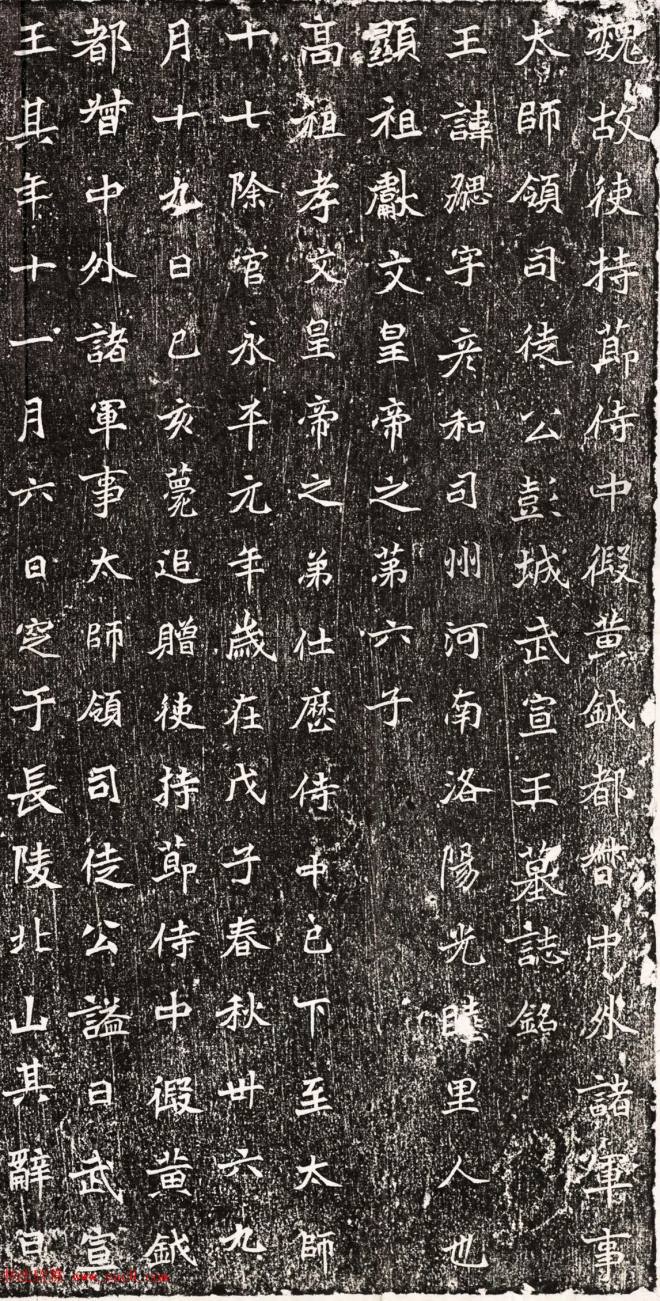 魏故使持節侍中假黄鉞都督中外諸軍事
太師領司徒公彭城武宣王墓誌銘
王諱勰字彦和司州河南洛陽光睦里人也
顯祖獻文皇帝之第六子
高祖孝文皇帝之弟仕歷侍中已下至太師
十七除官永平元年歲在戊子春秋卅六九
月十九日己亥薨追贈使持節侍中假黄鉞
都督中外諸軍事太師領司徒公謚曰武宣
王其年十一月六日窆于長陵北山其辭曰